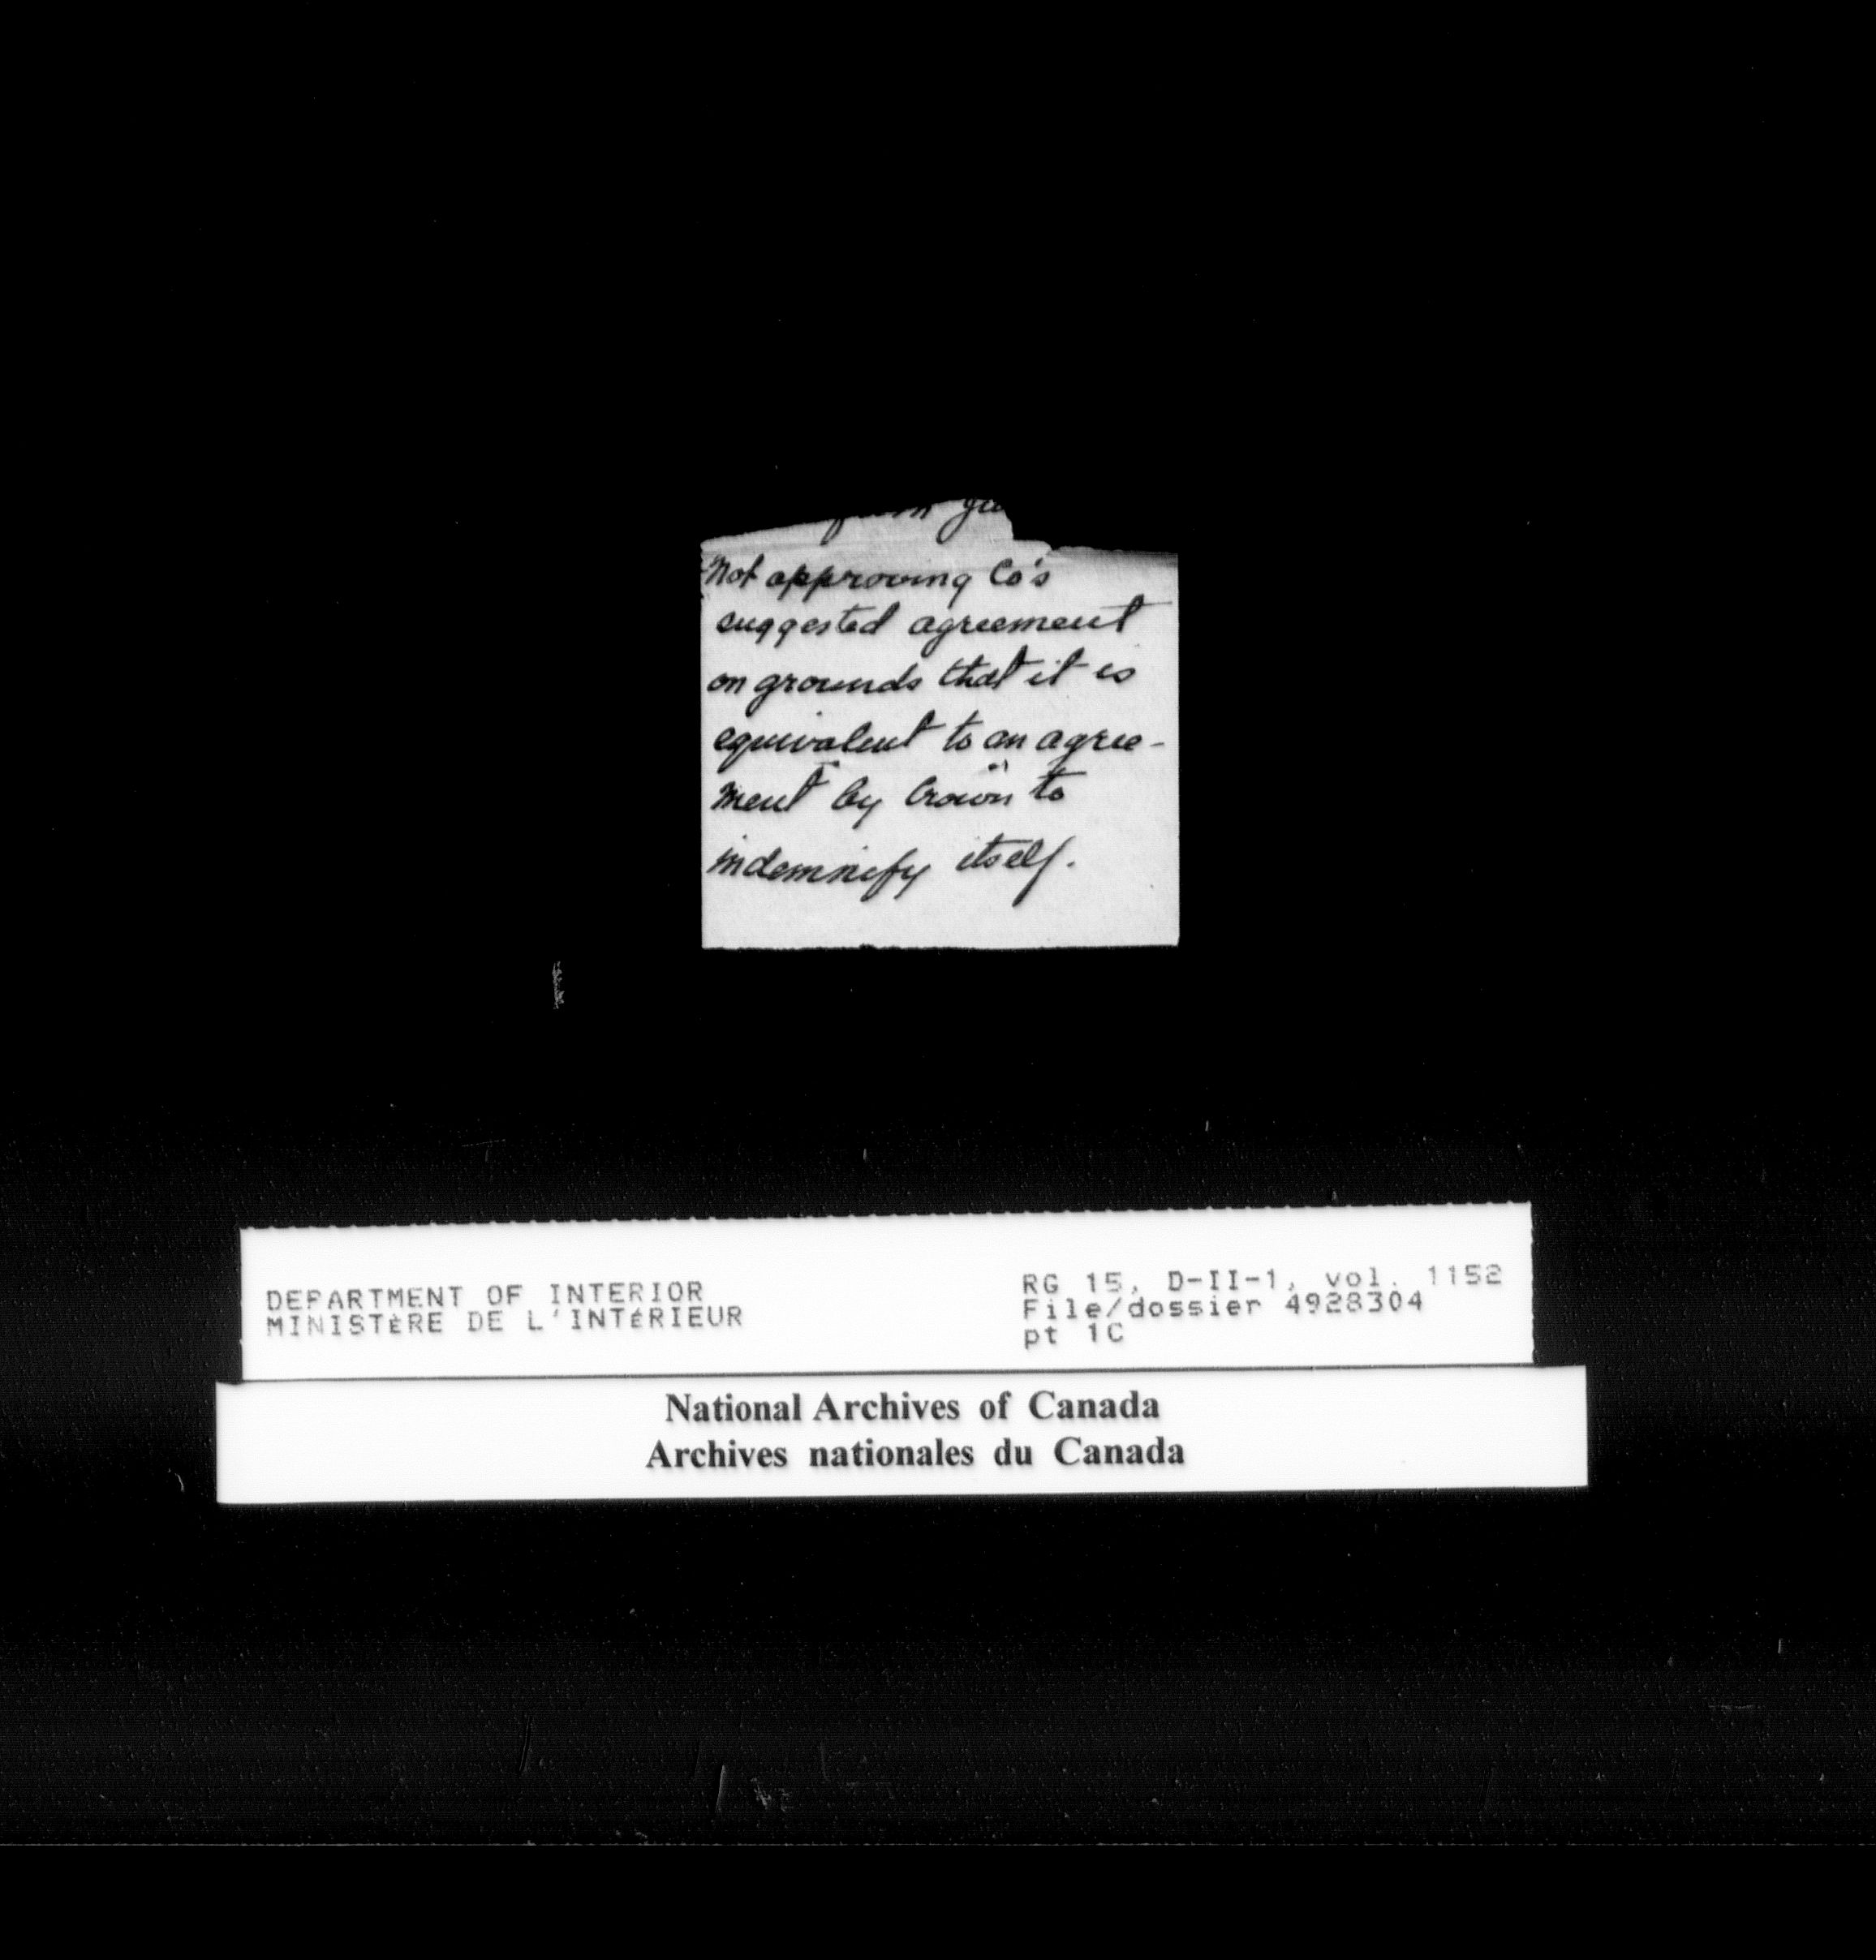 Not approving Co's
suggested agreement
on grounds that it is
equivalent to an agree-
ment by Crown to
indemnify itself.
DEPARTMENT OF INTERIOR
MINISTÈRE DE L'INTÉRIEUR
RG 15, D-II-1, vol. 1152
File/dossier 4928304
pt 1C
National Archives of Canada
Archives nationales du Canada